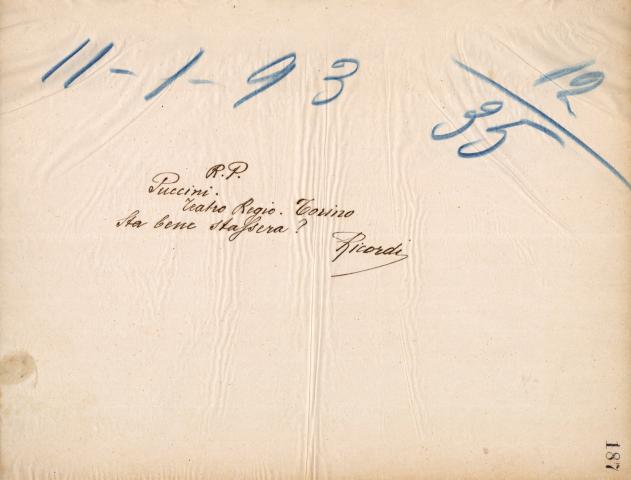 11-1-93
12
35
R.P.
Puccini.
Teatro Regio. Torino
Sta bene stassera?
Ricordi
187